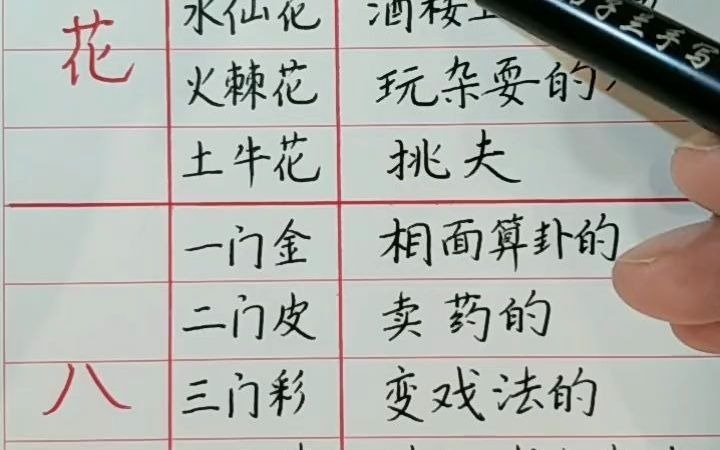 花
水仙花 酒楼
火棘花 玩杂耍的
土牛花 挑夫
一门金 相面算卦的
二门皮 卖药的
八
三门彩 变戏法的
兰手写